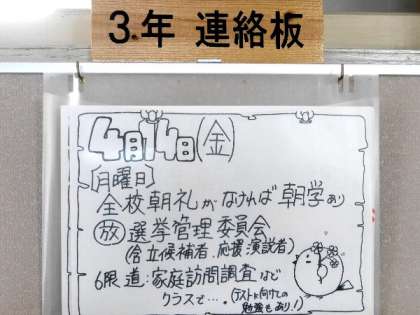 3年 連絡板
4月14日(金)
[月曜日]
全校朝礼がなければ朝学あり
放 選挙管理委員会
(含立候補者、応援演説者)
6限 道:家庭訪問調査など
クラスで….(テストに向けての
勉強もあり!)